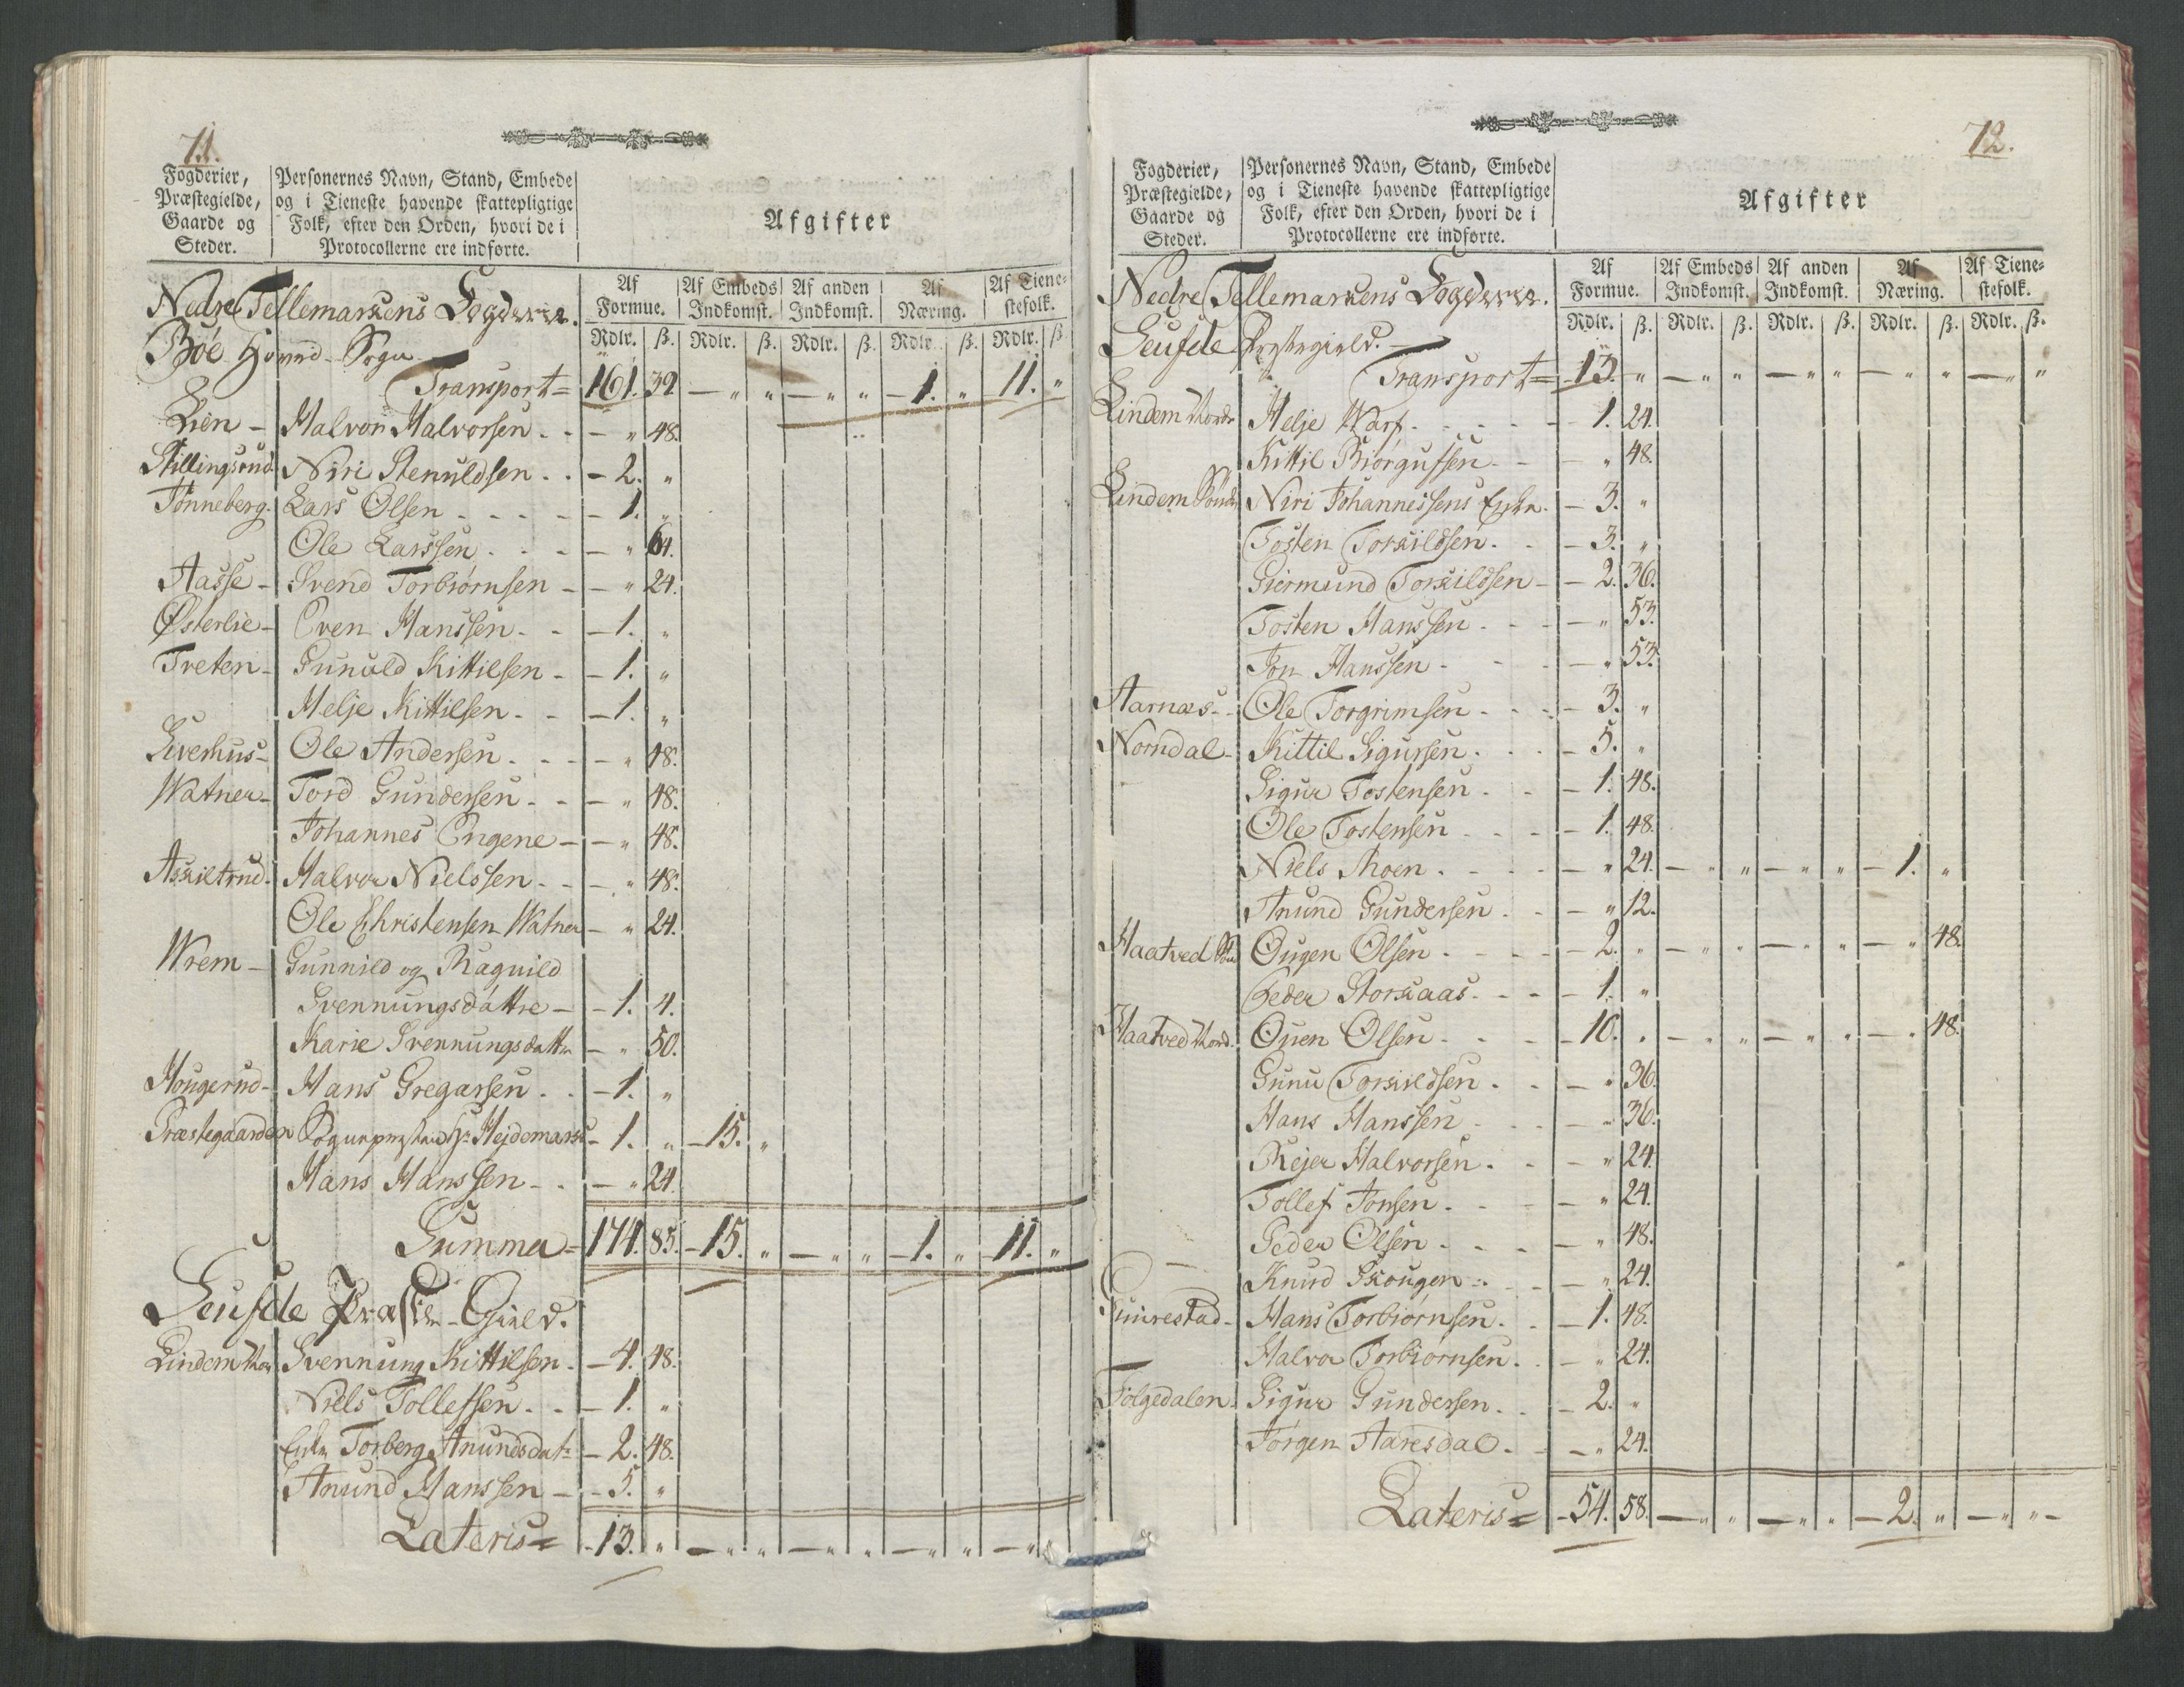 71.
Fogderier, Præstegielde, Gaarde og Steder.
Personernes Navn, Stand, Embede og i Tieneste havende skattepligtige Folk, efter den Orden, hvori de i Protocollerne ere indførte.
Afgifter
Af Formue. Af Embeds Indkomst. Af anden Indkomst. Af Næring. Af Tienestefolk.
Rdlr. ß. Rdlr. ß. Rdlr. ß. Rdlr. ß. Rdlr. ß.
Nedre Tellemarkens Fogderie.
Bøe Hovved-Sogn
Transport = 161. 32. — „ „ — „ „ — 1. „ 11. „
Lien - Halvor Halvorsen - - „ 48.
Stillingsrud Niri Stenuldsen - 2. „
Tønneberg - Lars Olsen - 1. „
Ole Larssen - „ 64.
Aasse - Svend Torbiørnsen - „ 24.
Østerlie - Even Hanssen - 1. „
Treten - Gunuld Kittilsen - 1. „
Helje Kittilsen - 1. „
Everhus - Ole Andersen - „ 48.
Watner - Tord Gundersen - „ 48.
Johannes Engene - „ 48.
Askiltrud - Halvor Nielssen - „ 48.
Ole Christensen Watner - „ 24.
Wrem - Gunnild og Ragnild
Svennungsdøttre - 1. 4.
Karie Svennungsdatter - „ 50.
Hougerud - Hans Gregarsen - 1. „
Præstegaarden Sogneprest Hr Hejdemark - 1. „ - 15. „
Hans Hanssen - „ 24.
Summa = 174. 85. - 15. „ — „ „ - 1. „ 11. „
Seufde Præste-Gield.
Lindem Nor Svennung Kittilsen - 4. 48.
Niels Tollefsen - 1. „
Enke Torberg Anundsdatr - 2. 48.
Anund Hanssen - 5. „
Lateris = 13. „ — „ „ — „ „ — „ „ — „ „
72.
Fogderier, Præstegielde, Gaarde og Steder.
Personernes Navn, Stand, Embede og i Tieneste havende skattepligtige Folk, efter den Orden, hvori de i Protocollerne ere indførte.
Afgifter
Af Formue. Af Embeds Indkomst. Af anden Indkomst. Af Næring. Af Tienestefolk.
Rdlr. ß. Rdlr. ß. Rdlr. ß. Rdlr. ß. Rdlr. ß.
Nedre Tellemarkens Fogderie.
Seufde Præstegield.
Transport = 13. „ — „ „ — „ „ — „ „ — „ „
Lindem Nordr Helje Warp - 1. 24.
Kittil Biørgufsen - „ 48.
Lindem Søndr Niri Johannessens Enke - 3. „
Tosten Torkildsen - 3. „
Giermund Torkildsen - 2. 36.
Tosten Hanssen - „ 53.
Jon Hanssen - „ 53.
Aarnæs - Ole Torgrimsen - 3. „
Norndal - Kittil Sigursen - 5. „
Sigur Tostensen - 1. 48.
Ole Tostensen - 1. 48.
Niels Moen - „ 24. — „ „ — „ „ - 1. „
Anund Gundersen - „ 12.
Haatved Øugen Olsen - 2. „ — „ „ — „ „ — „ 48.
Peder Storkaas - 1. „
Haatved Nord. Ouen Olsen - 10. „ — „ „ — „ „ — „ 48.
Gunu Torkildsen - „ 36.
Hans Hanssen - „ 36.
Rejer Halvorsen - „ 24.
Tollef Jonsen - „ 24.
Peder Olsen - „ 48.
Knud Skougen - „ 24.
Hans Torbiørnsen - 1. 48.
Halvor Torbiørnsen - „ 24.
Følgedalen - Sigur Gundersen - 2. „
Jørgen Aaresdal - „ 24.
Lateris = 54. 58. — „ „ — „ „ - 2. „ — „ „